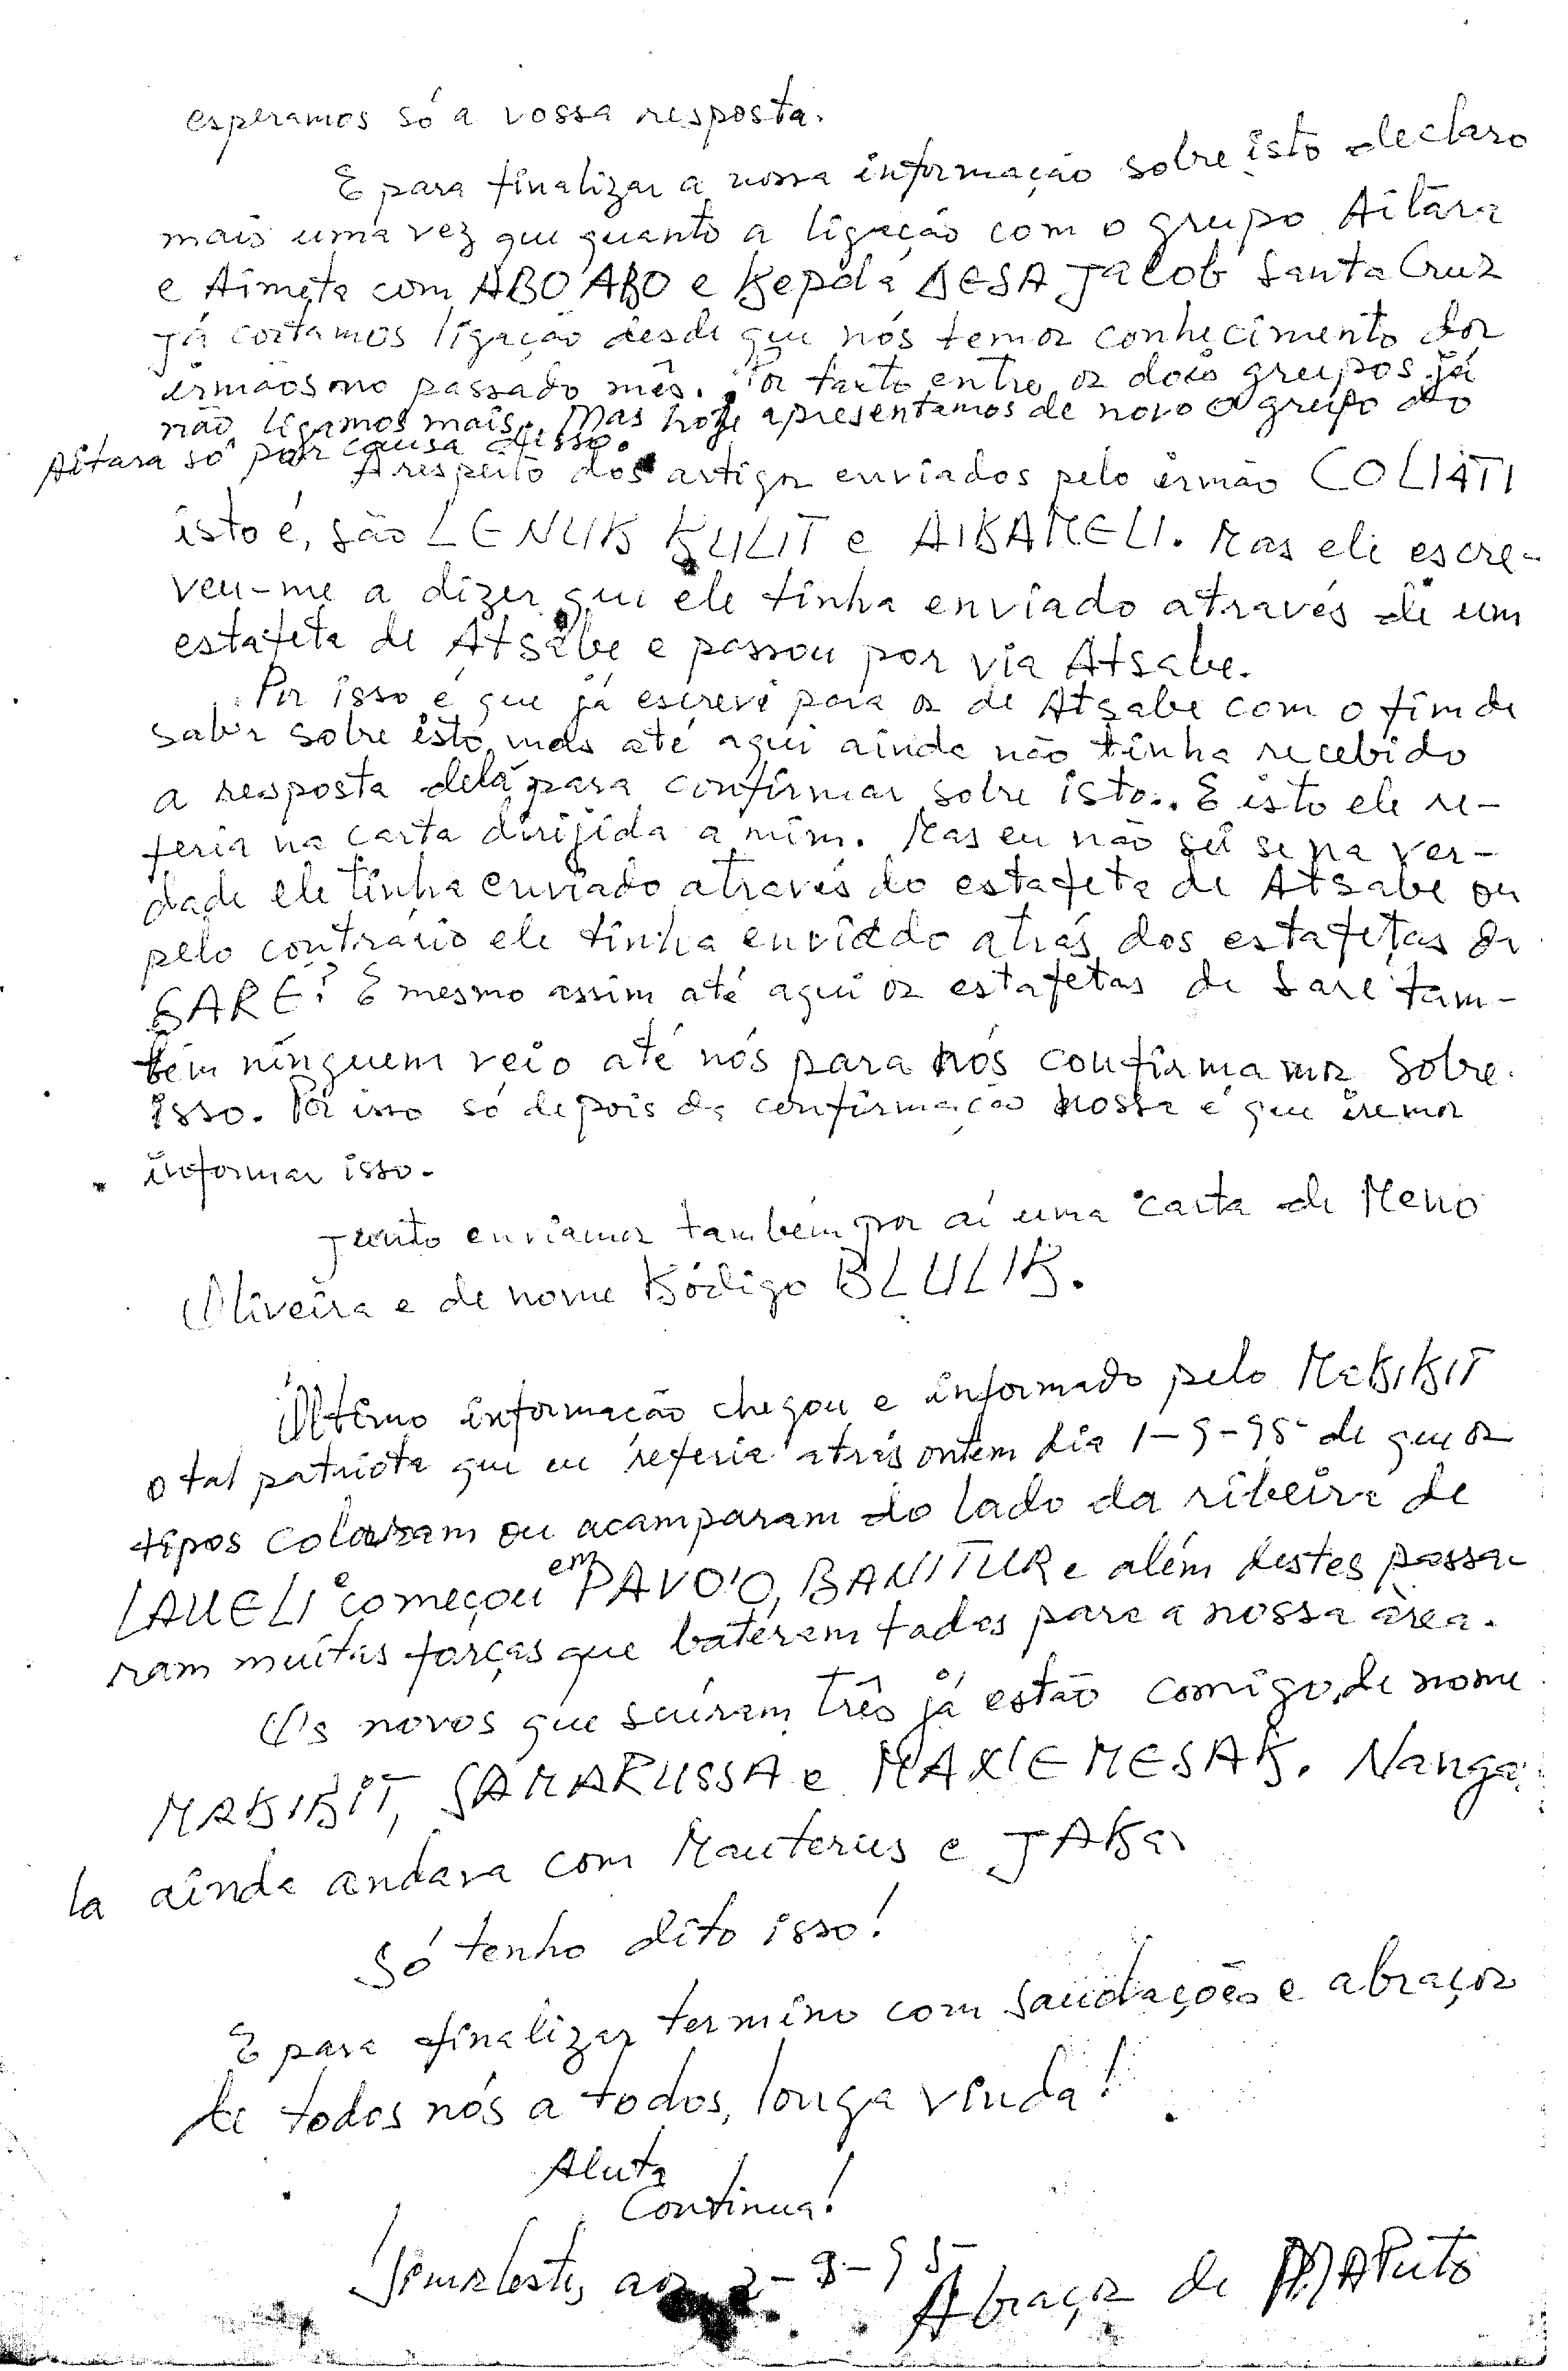 esperamos só a vossa resposta.
E para finalizar a nossa informação sobre isto declaro
mais uma vez que quanto a ligação com o grupo Aitara
e Aimeta com ABO ABO e Kepala DESA Jacob Santa Cruz
já cortamos ligação desde que nós temos conhecimento dos
irmãos no passado mês. Por tanto entre os dois grupos já
não ligamos mais. Mas hoje apresentamos de novo o grupo do
Aitara só por causa disso.
A respeito dos artigos enviados pelo irmão COLIATI
isto é, são LENUK KULIT e AIKAMELI. Mas ele escre-
veu-me a dizer que ele tinha enviado através de um
estafeta de Atsabe e passou por via Atsabe.
Por isso é que já escrevi para os de Atsabe com o fim de
saber sobre isto, mas até aqui ainda não tinha recebido
a resposta delá para confirmar sobre isto.. E isto ele re-
feria na carta dirijida a mim. Mas eu não sei se na ver-
dade ele tinha enviado através do estafeta de Atsabe ou
pelo contrário ele tinha enviado atrás dos estafetas de
SARE? E mesmo assim até aqui os estafetas de Sare tam-
bém ninguem veio até nós para nós confirmamos sobre
isso. Por isso só depois da confirmação nossa é que iremos
informar isso.
Junto enviamos também por aí uma carta de Meno
Oliveira e de nome Kódigo BLULIK.
Último informação chegou e informado pelo MaKIKIT
o tal patriota que eu referia atrás ontem dia 1-9-95 de que os
tipos colaram ou acamparam do lado da ribeira de
LAUELI e começou em PAVO'O, BANITUR e além destes passa-
ram muitas forças que bateram todas para a nossa àrea.
Os novos que saíram três já estão comigo, de nome
MAKIKIT, SAMARUSSA e MAXIEMESAK. Nanga
la ainda andava com Mauterus e JAKA
Só tenho dito isso!
E para finalizar termino com saudações e abraços
de todos nós a todos, longa vinda!
Aluta
Continua!
aos 2-9-95
Abraços de